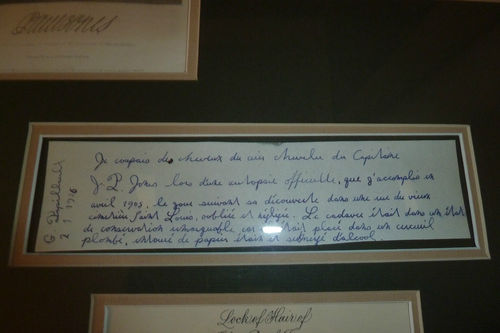 Je coupais des cheveux du cuir chevelu du Capitaine
J. P. Jones lors d'une autopsie officielle, que j'accomplis en
avril 1905, le jour suivant sa découverte dans une rue du vieux
cimetière Saint Louis, oublié et négligé. Le cadavre était dans un état
de conservation remarquable, car était placé dans un cercueil
plombé, entouré de papier étain et submergé d'alcool.
G. Papillault
Lock of Hair of